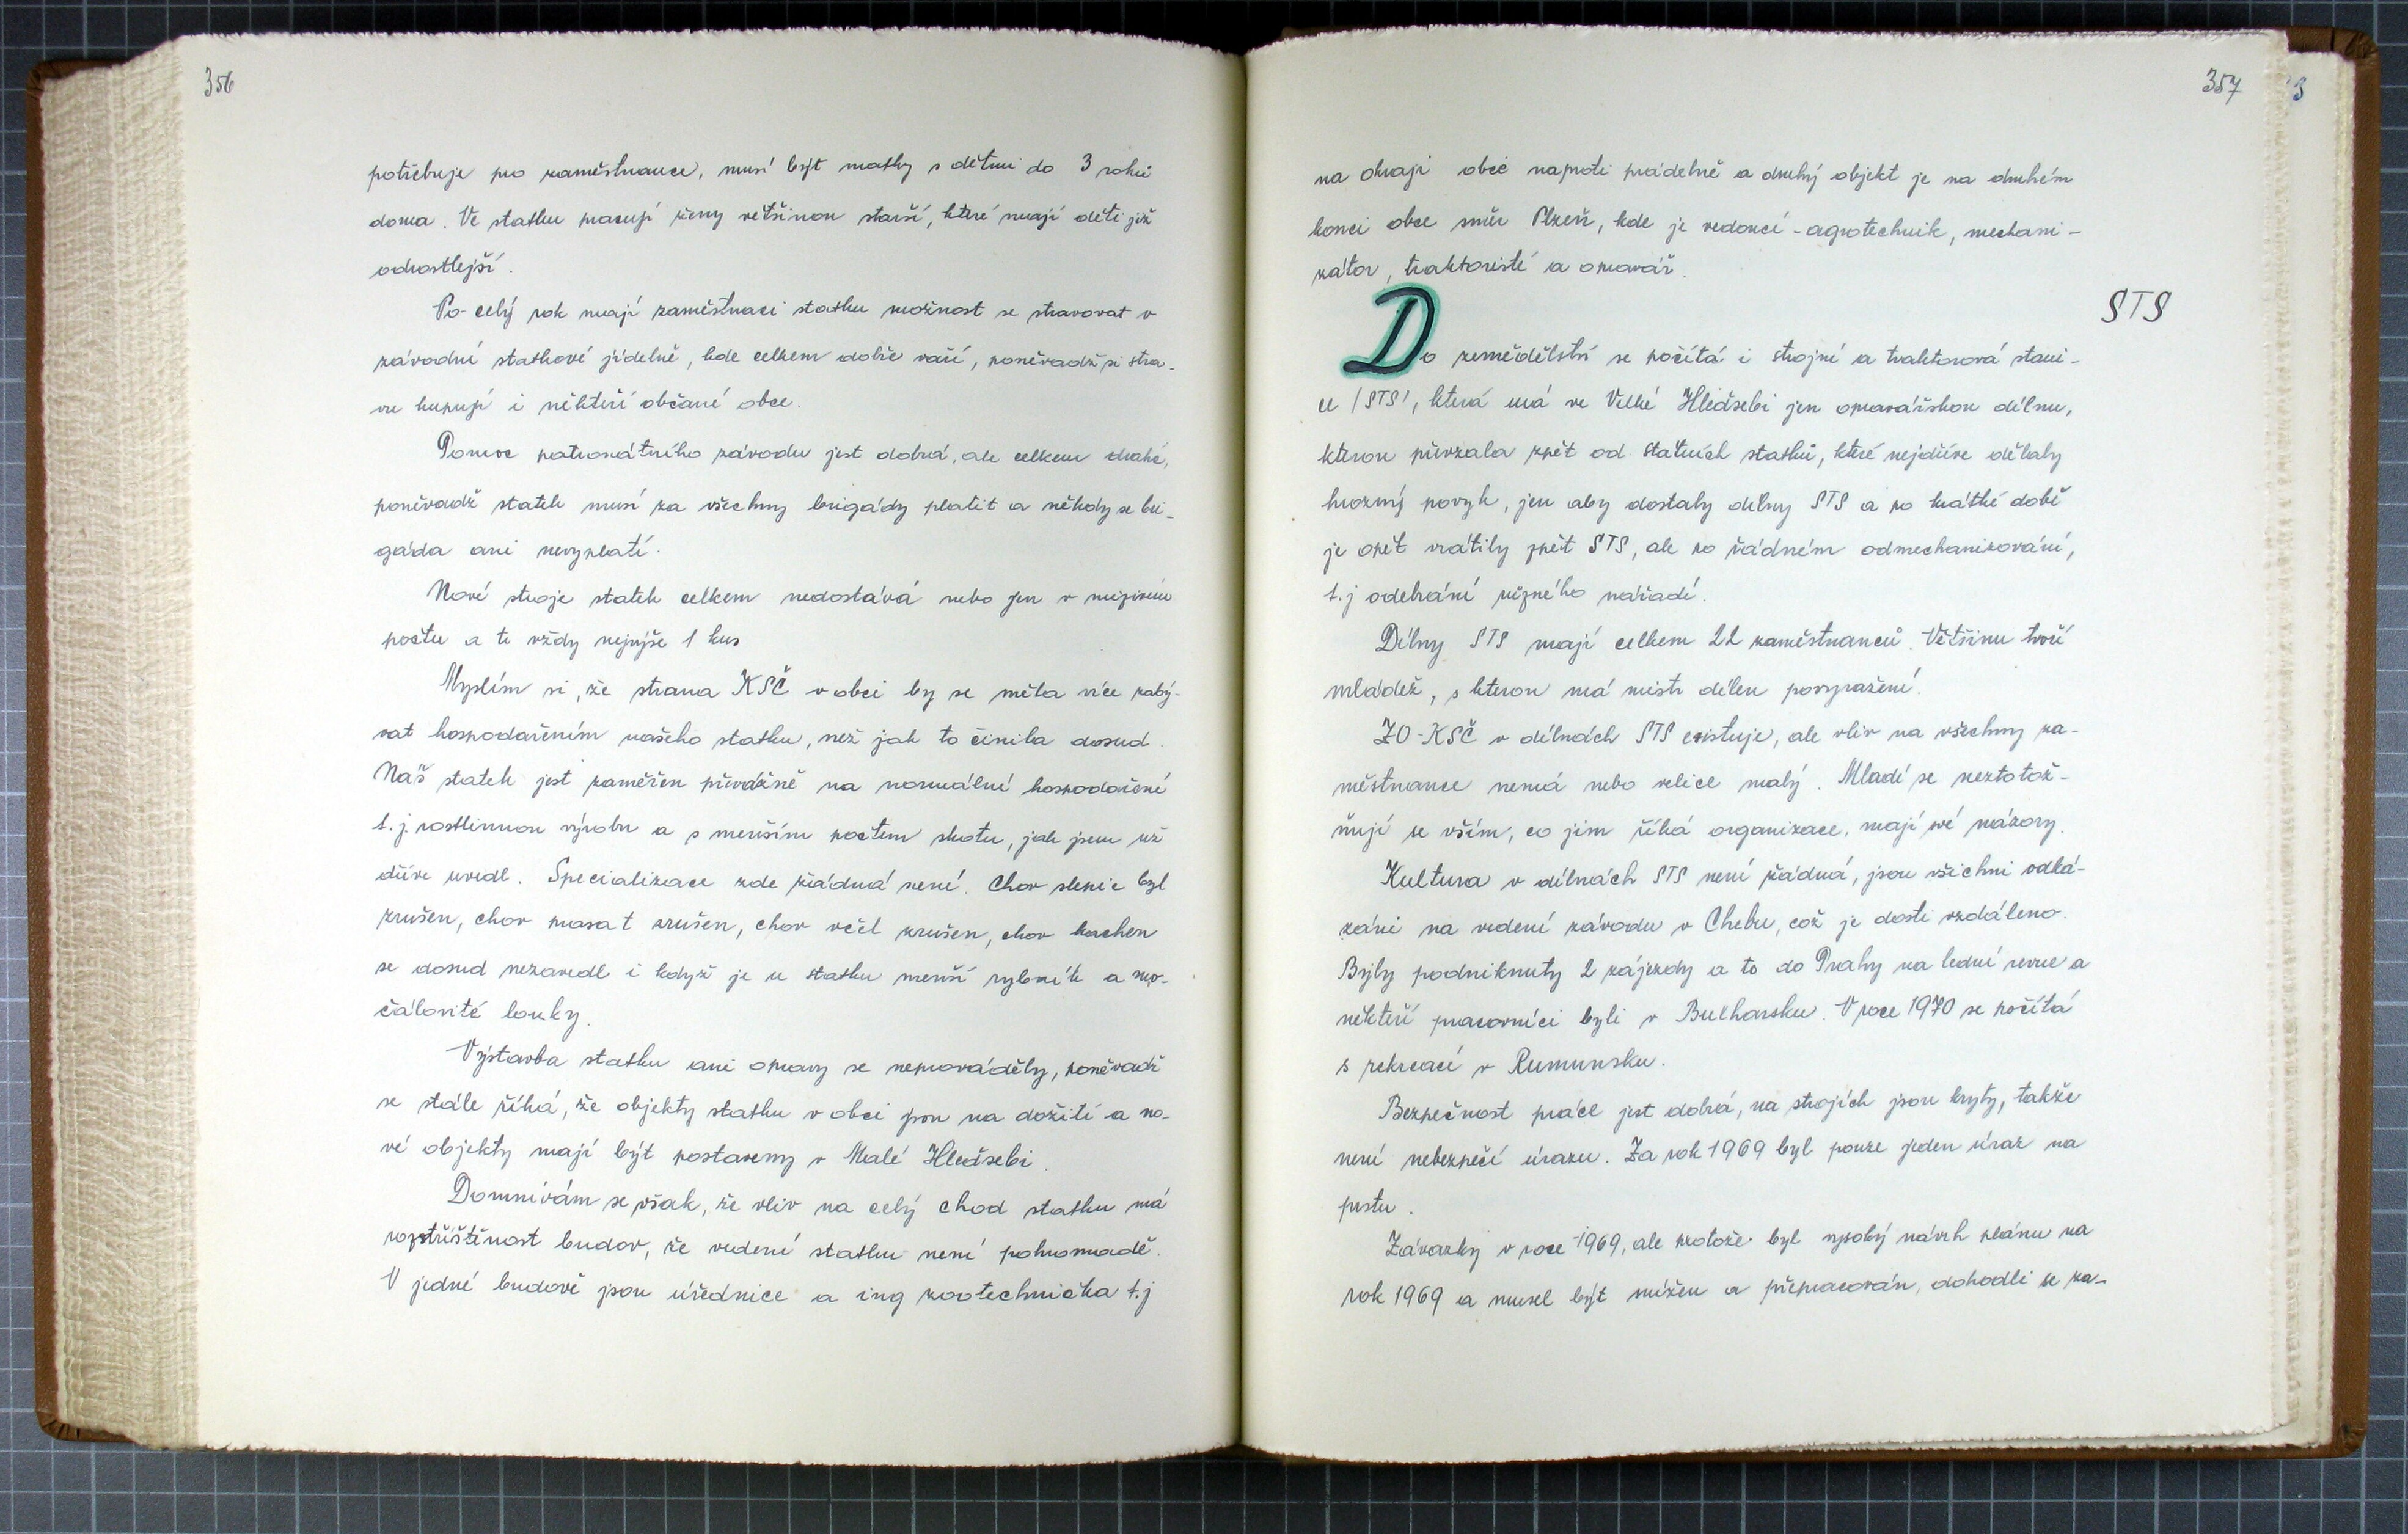 356
potřebuje pro zaměstnance, musí být matky s dětmi do 3 roků
doma. Ve statku pracují ženy většinou starší, které mají děti již
odrostlejší.
Po celý rok mají zaměstnaci statku možnost se stravovat v
závodní statkové jídelně, kde celkem dobře vaří, poněvadž si stra-
vu kupují i někteří občané obce.
Pomoc patronátního závodu jest dobrá, ale celkem drahá,
poněvadž statek musí za všechny brigády platit a někdy se bri-
gáda ani nevyplatí.
Nové stroje statek celkem nedostává nebo jen v mizivém
počtu a to vždy nejvýše 1 kus
Myslím si, že strana KSČ v obci by se měla více zabý-
vat hospodařením našeho statku, než jak to činila dosud.
Náš statek jest zaměřen převážně na normální hospodaření
t.j. rostlinnou výrobu a s menším počtem skotu, jak jsem už
dříve uvedl. Specializace zde žádná není. Chov slepic byl
zrušen, chov prasat zrušen, chov včel zrušen, chov kachen
se dosud nezavedl i když je u statku menší rybník a mo-
čálovité louky.
Výstavba statku ani opravy se neprováděly, poněvadž
se stále říká, že objekty statku v obci jsou na dožití a no-
vé objekty mají být postaveny v Malé Hleďsebi.
Domnívám se však, že vliv na celý chod statku má
roztříštěnost budov, že vedení statku není pohromadě.
V jedné budově jsou úřednice a ing zootechnička t.j
357
na okraji obce naproti prádelně a druhý objekt je na druhém
konci obce směr Plzeň, kde je vedoucí - agrotechnik, mechani-
zátor, traktoristé a opravář.
STS
Do zemědělství se počítá i strojní a traktorová stani-
ce /STS/, která má ve Velké Hleďsebi jen opravářskou dílnu,
kterou převzala zpět od Státních statků, které nejdříve dělaly
hrozný povyk, jen aby dostaly dílny STS a po krátké době
je opět vrátily zpět STS, ale po řádném odmechanizování,
t.j odebrání různého nářadí.
Dílny STS mají celkem 22 zaměstnanců. Většinu tvoří
mládež, s kterou má mistr dílen povyražení.
ZO-KSČ v dílnách STS existuje, ale vliv na všechny za-
městnance nemá nebo velice malý. Mladí se neztotož-
ňují se vším, co jim říká organizace, mají své názory.
Kultura v dílnách STS není žádná, jsou všichni odká-
záni na vedení závodu v Chebu, což je dosti vzdáleno.
Byly podniknuty 2 zájezdy a to do Prahy na lední revue a
někteří pracovníci byli v Bulharsku. V roce 1970 se počítá
s rekreací v Rumunsku.
Bezpečnost práce jest dobrá, na strojích jsou kryty, takže
není nebezpečí úrazu. Za rok 1969 byl pouze jeden úraz na
prstu.
Závazky v roce 1969, ale protože byl vysoký návrh plánu na
rok 1969 a musel být snížen a přepracován, dohodli se za-